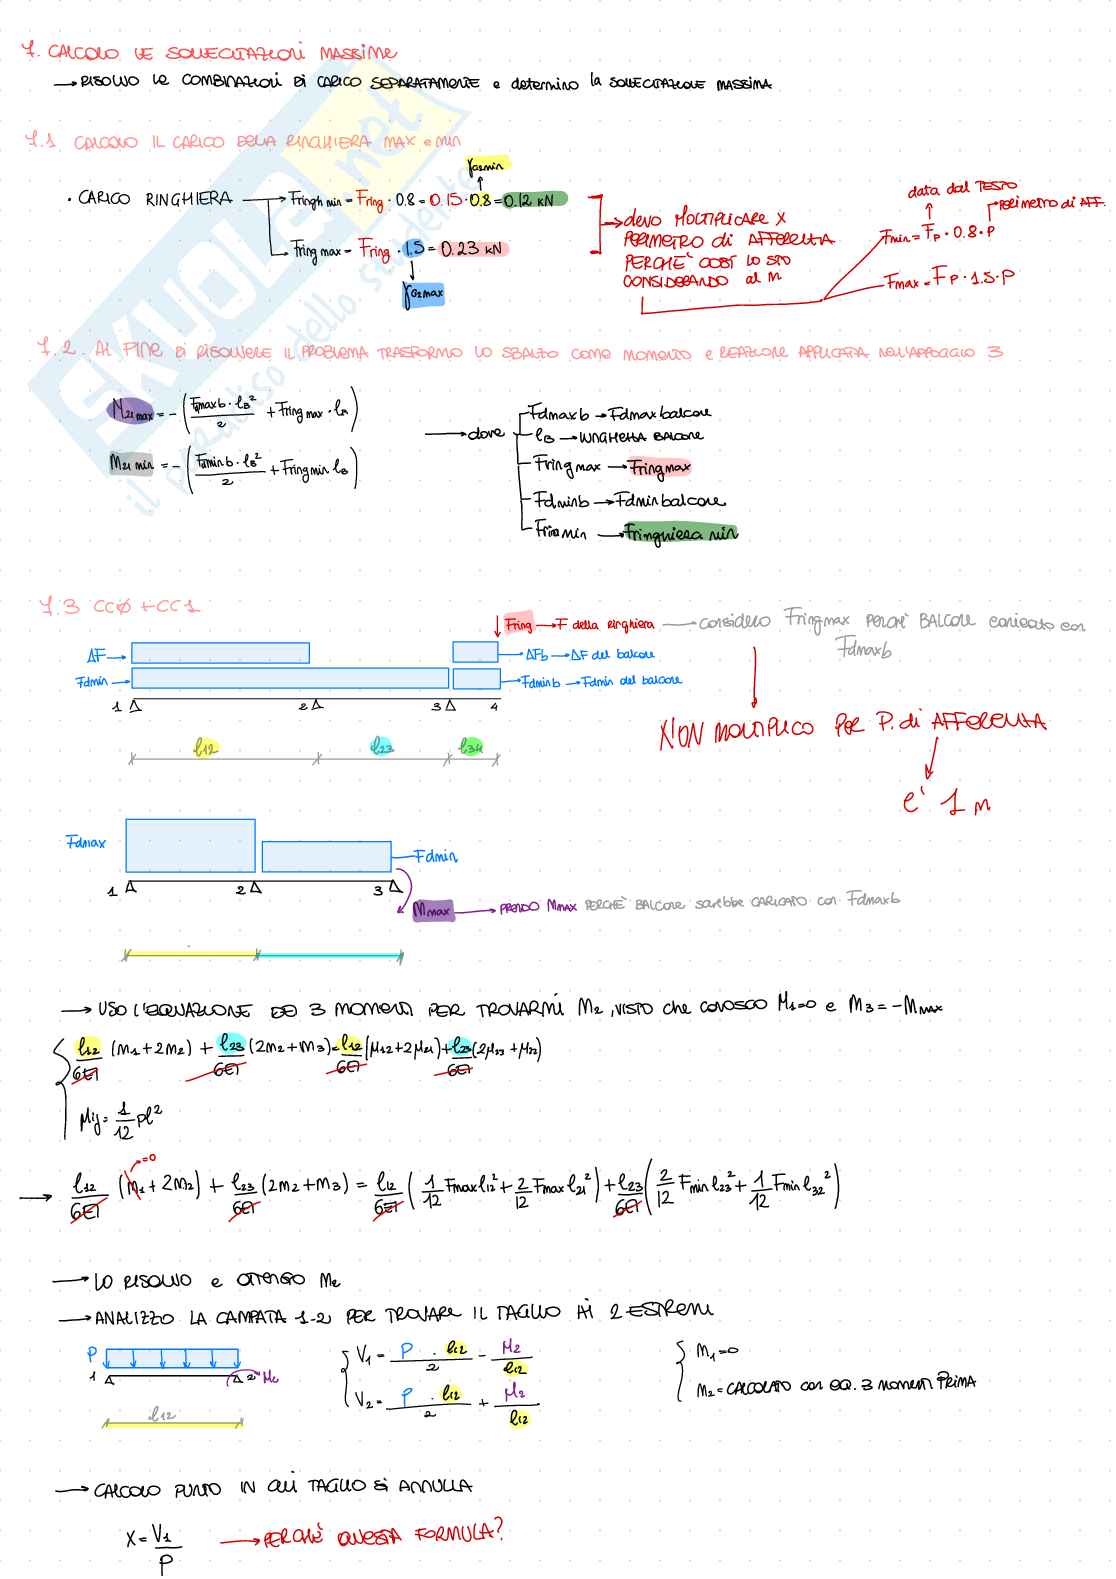 7. CALCOLO LE SOLLECITAZIONI MASSIME
→ RISOLVO LE COMBINAZIONI DI CARICO SEPARATAMENTE e determino la SOLLECITAZIONE MASSIMA
7.1 CALCOLO IL CARICO DELLA RINGHIERA MAX e min
γG2min
• CARICO RINGHIERA → Fringh min = Fring · 0.8 = 0.15 · 0.8 = 0.12 kN
Fring max = Fring · 1.5 = 0.23 kN
γG2max
→ devo MOLTIPLICARE X
PERIMETRO di AFFERENZA
PERCHÈ COSÌ LO STO
CONSIDERANDO al m
data dal TESTO
→ PERIMETRO di AFF.
Fmin = Fp · 0.8 · P
Fmax = Fp · 1.5 · P
7.2. Al FINE DI RISOLVERE IL PROBLEMA TRASFORMO LO SBALZO COME MOMENTO e REAZIONE APPLICATA NELL'APPOGGIO 3
M21 max = - (Fdmaxb · lB² / 2 + Fring max · lB)
M21 min = - (Fdminb · lB² / 2 + Fring min lB)
→ dove
Fdmaxb → Fdmax balcone
lB → LUNGHEZZA BALCONE
Fring max → Fring max
Fdminb → Fdmin balcone
Frin min → Fringhiera min
7.3 CCØ + CC1
Fring → F della ringhiera → considero Fringmax PERCHÈ BALCONE caricato con
Fdmaxb
ΔF →
→ ΔFb → ΔF del balcone
Fdmin →
→ Fdminb → Fdmin del balcone
1 2 3 4
l12 l23 l34
NON MOLTIPLICO PER P. di AFFERENZA
e' 1 m
Fdmax
Fdmin
1 2 3
Mmax → PRENDO Mmax PERCHÈ BALCONE sarebbe CARICATO con Fdmaxb
→ USO L'EQUAZIONE DEI 3 MOMENTI PER TROVARMI M2, VISTO che conosco M1=0 e M3 = -Mmax
l12/6EI (m1 + 2m2) + l23/6EI (2m2 + m3) = l12/6EI (μ12 + 2μ21) + l23/6EI (2μ23 + μ32)
μij = 1/12 pl²
=0
→ l12/6EI (m1 + 2m2) + l23/6EI (2m2 + m3) = l12/6EI (1/12 Fmax l12² + 2/12 Fmax l21²) + l23/6EI (2/12 Fmin l23² + 1/12 Fmin l32²)
→ LO RISOLVO e OTTENGO M2
→ ANALIZZO LA CAMPATA 1-2 PER TROVARE IL TAGLIO AI 2 ESTREMI
P
1 2 M2
l12
V1 = P · l12 / 2 - M2 / l12
V2 = P · l12 / 2 + M2 / l12
M1 = 0
M2 = CALCOLATO con EQ. 3 MOMENTI PRIMA
→ CALCOLO PUNTO IN CUI TAGLIO SI ANNULLA
X = V1 / P → PERCHÈ QUESTA FORMULA?
SKUOLA.net
il paradiso dello studente